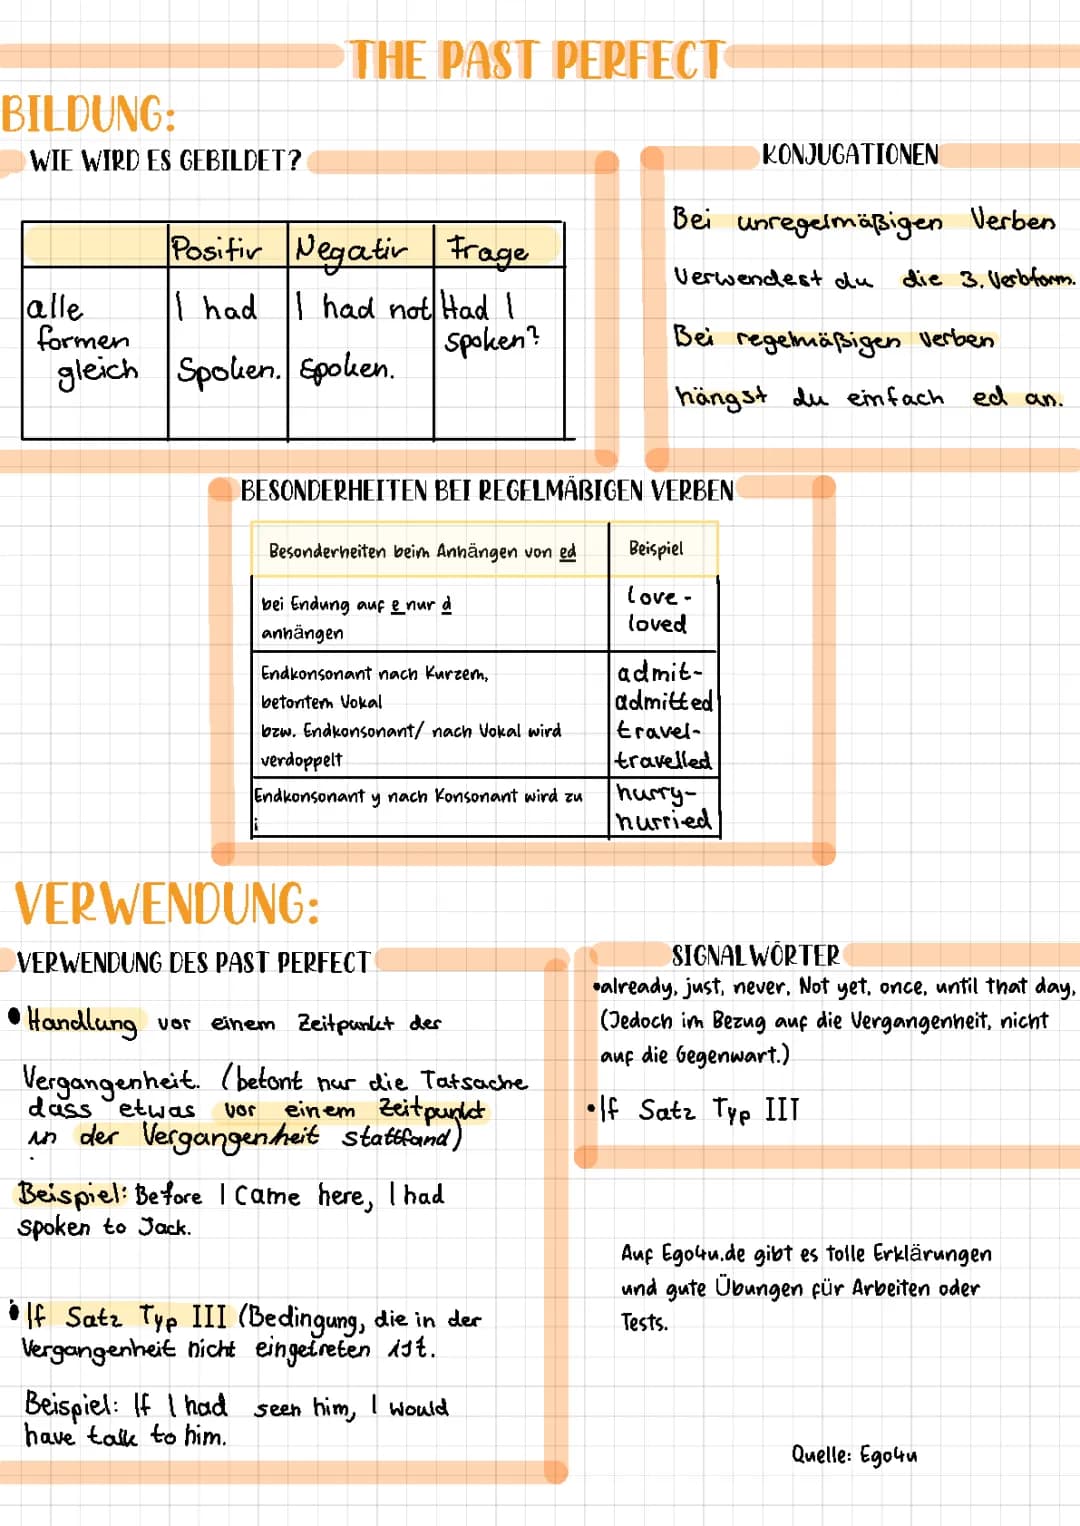 THE PAST PERFECT
BILDUNG:
WIE WIRD ES GEBILDET?
Positiv Negativ Frage
alle formen gleich
I had Spoken.
I had not spoken.
Had I spoken?
KONJUGATIONEN
Bei unregelmäßigen Verben
verwendest du die 3. Verbform.
Bei regelmäßigen Verben
hängst du einfach ed an.
BESONDERHEITEN BEI REGELMÄßIGEN VERBEN
Besonderheiten beim Anhängen von ed Beispiel
bei Endung auf e nur d
anhängen
love -
loved
Endkonsonant nach Kurzem,
betontem Vokal
bzw. Endkonsonant/ nach Vokal wird
verdoppelt
admit-
admitted
travel-
travelled
Endkonsonant y nach Konsonant wird zu
i
hurry-
hurried
VERWENDUNG:
VERWENDUNG DES PAST PERFECT
• Handlung vor einem Zeitpunkt der
Vergangenheit. (betont nur die Tatsache
dass etwas vor einem Zeitpunkt
in der Vergangenheit stattfand)
Beispiel: Before I came here, I had
spoken to Jack.
• If Satz Typ III (Bedingung, die in der
Vergangenheit nicht eingetreten ist.
Beispiel: If I had seen him, I would
have talk to him.
SIGNALWÖRTER
•already, just, never, Not yet, once, until that day,
(Jedoch im Bezug auf die Vergangenheit, nicht
auf die Gegenwart.)
•If Satz Typ III
Auf Ego4u.de gibt es tolle Erklärungen
und gute Übungen für Arbeiten oder
Tests.
Quelle: Ego4u